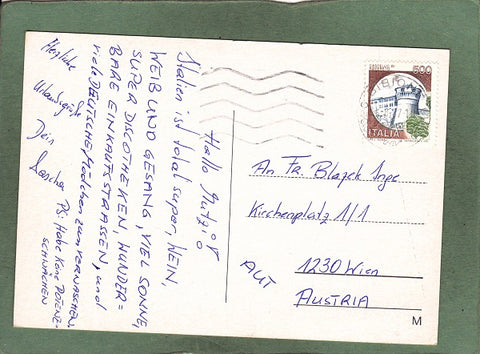 Hallo Mutzi
Italien ist total super, WEIN,
WEIB UND GESANG, VIEL SONNE,
SUPER DISCOTHEKEN, WUNDER=
BARE EINKAUFSSTRASSEN, und
viele DEUTSCHE Mädchen zum VERNASCHEN.
Herzliche
Urlaubsgrüße
Dein
Sascha
PS: Habe Keine
SCHMERZEN
500
ITALIA
An Fr. Blazek Inge
Kirchenplatz 1/1
1230 Wien
AUT
AUSTRIA
M